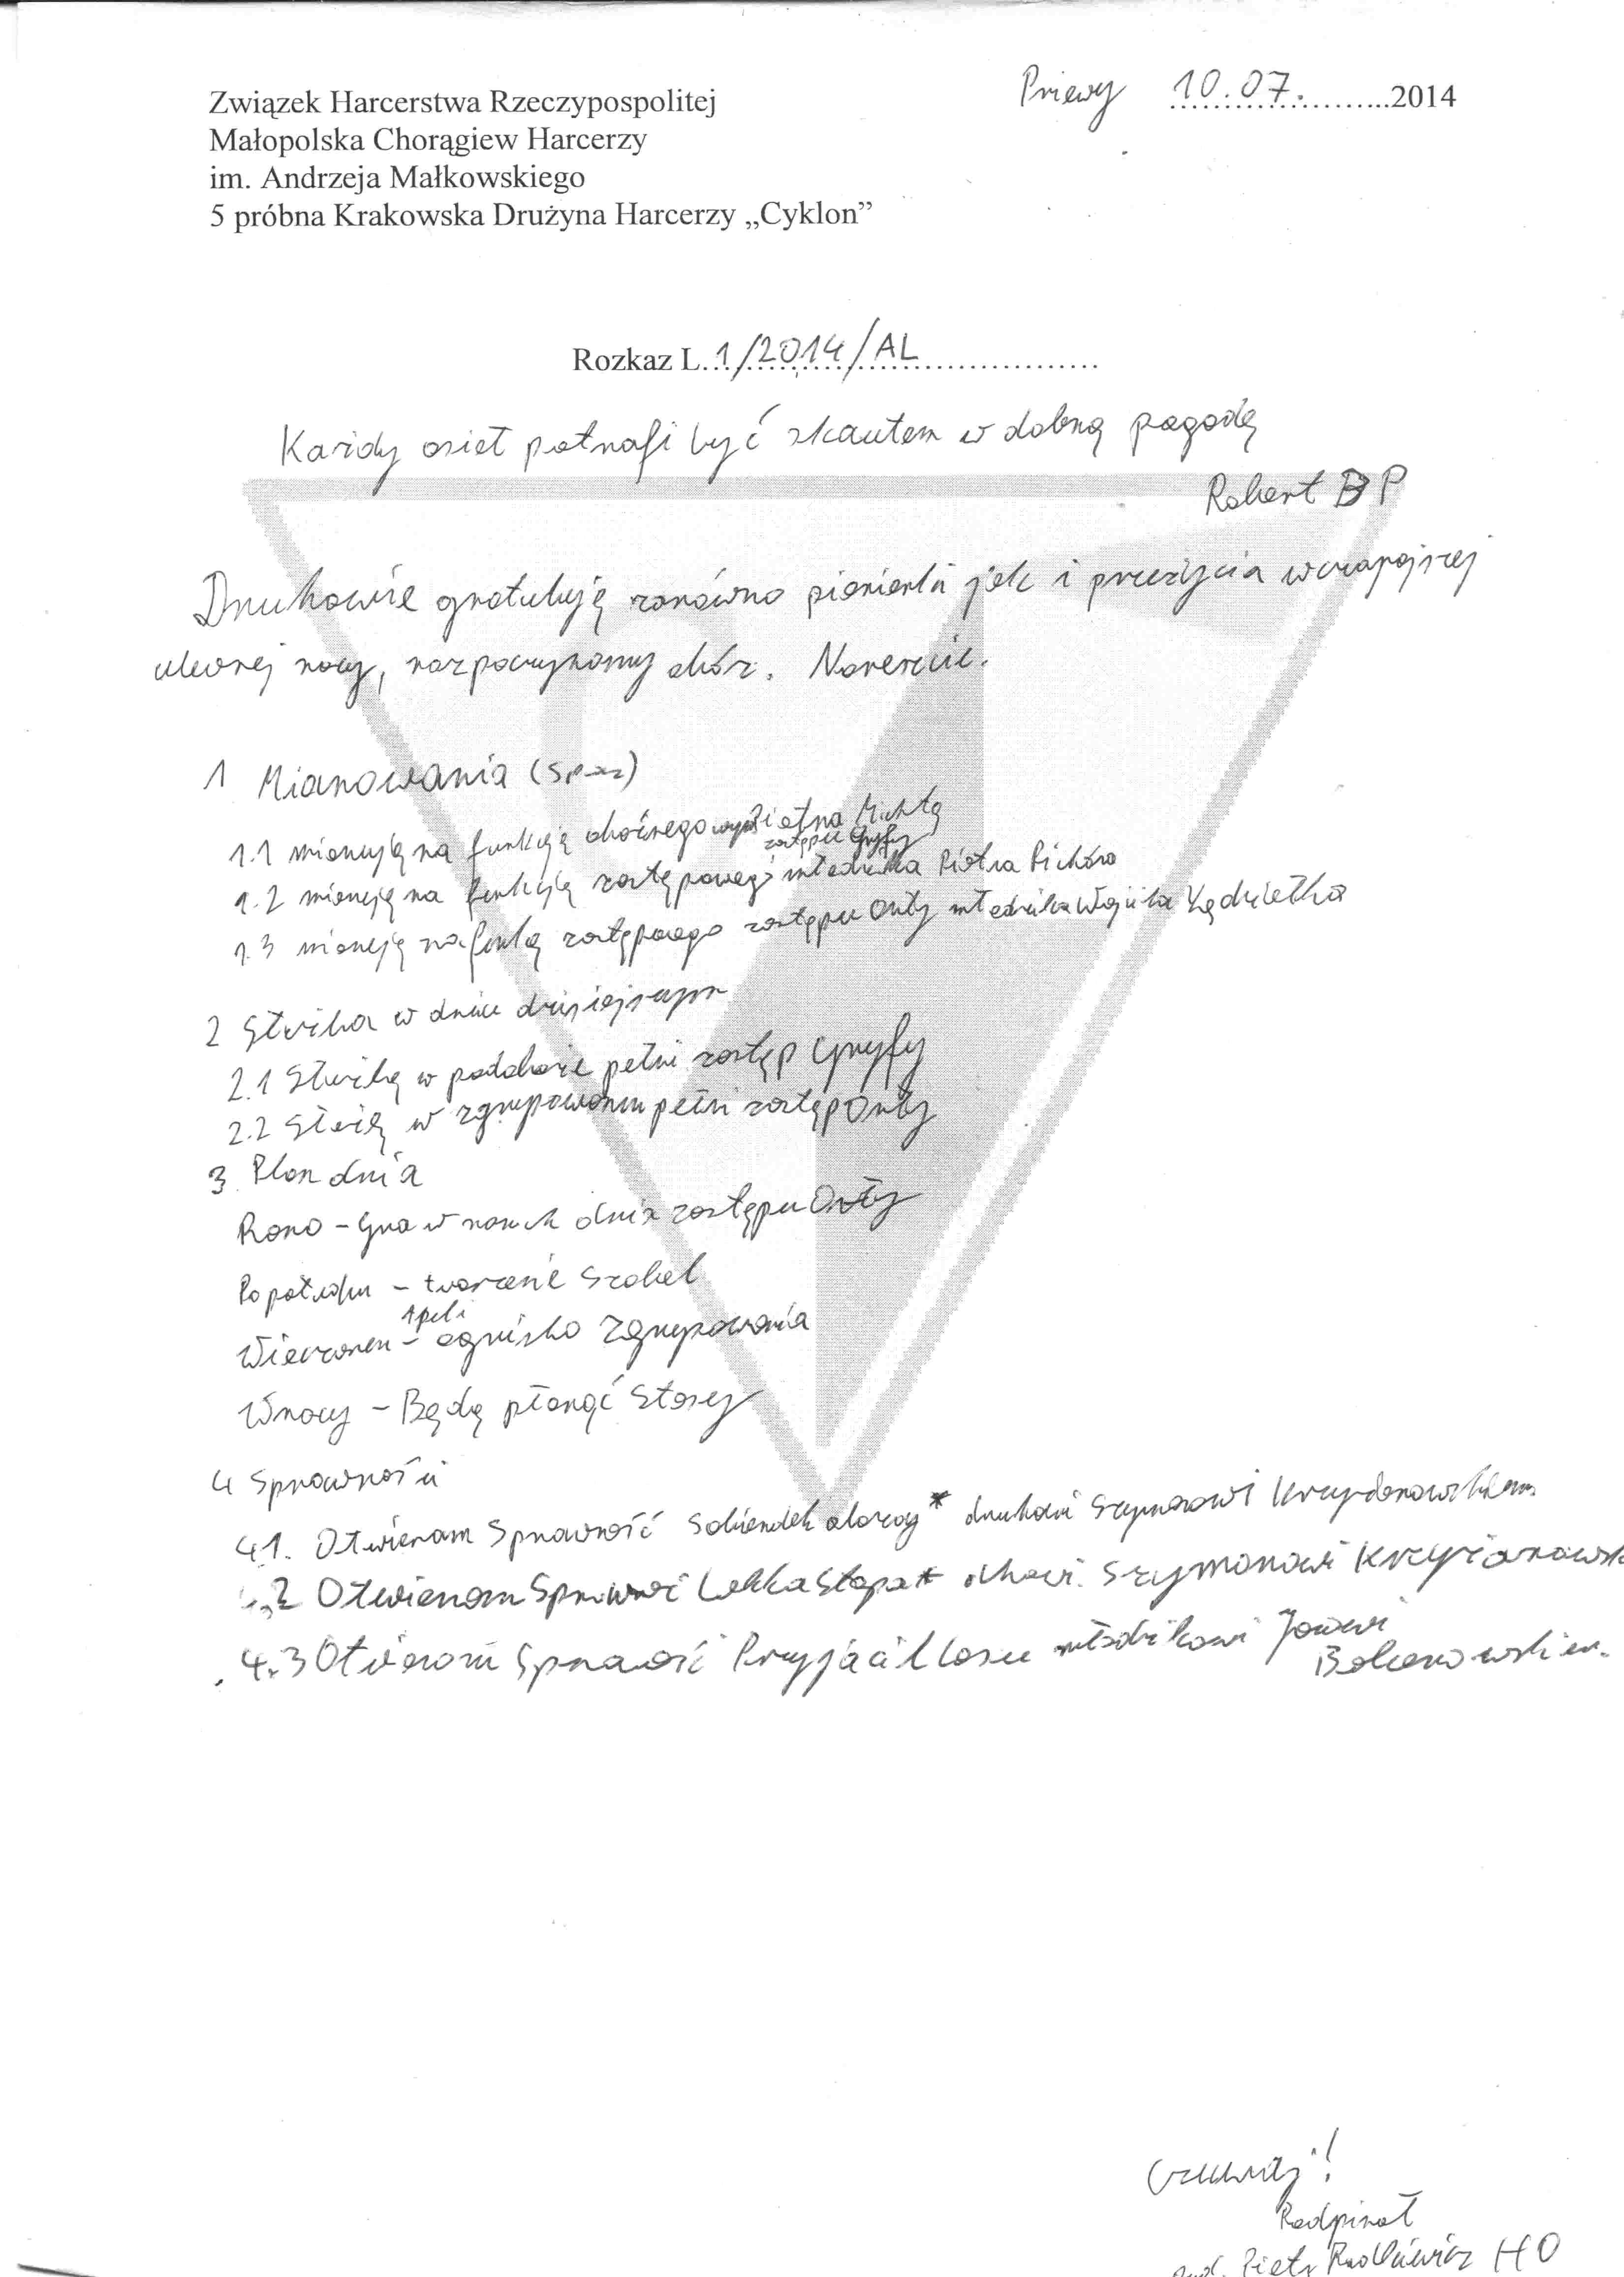 Związek Harcerstwa Rzeczypospolitej
Małopolska Chorągiew Harcerzy
im. Andrzeja Małkowskiego
5 próbna Krakowska Drużyna Harcerzy „Cyklon”
10.07. 2014
Rozkaz L. 1/2014/AL
Każdy osieł potrafi być skautem w dobrą pogodę
Robert BP
Druhowie gratuluję zarówno pionierki jak i przeżycia wczorajszej
ulewnej nocy, rozpoczynamy obóz. Nareszcie.
1 Mianowania
1.1 mianuję na funkcję oboźnego Piotra Michtę
zastępu Gryfy
1.2 mianuję na funkcję zastępowego młodzika Piotra
1.3 mianuję na funkcję zastępowego zastępu Orły młodzika Wojciecha
2 Służba w dniu dzisiejszym
2.1 Służbę w podobozie pełni zastęp Gryfy
2.2 Służbę w zgrupowaniu pełni zastęp Orły
3 Plan dnia
Rano - Gra w ramach dnia zastępu Orły
Popołudniu - tworzenie Szabel
Wieczorem - ognisko Zgrupowania
W nocy - Będą płonąć Stosy
4 Sprawności
4.1. Otwieram Sprawność * druhowi Szymonowi
4.2 Otwieram Sprawność Lekka Stopa * druhowi Szymonowi
4.3 Otwieram Sprawność Przyjaciel Lasu młodzikowi
Czuwaj!
Podpisał
Piotr HO